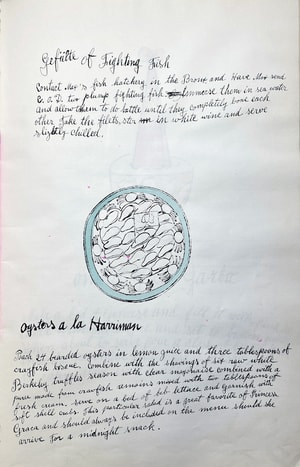 Gefilte Of Fighting Fish
Contact Max's fish hatchery in the Bronx and Have Max send
C.O.D. two plump fighting fish. Immerse them in sea water
and allow them to do battle until they completely bone each
other. Take the filets, stew in white wine and serve
slightly chilled.
Oysters a la Harriman
Pack 24 bearded oysters in lemon juice and three tablespoons of
crayfish bisque. combine with the shavings of six raw white
Berkeley truffles season with clear mayonaise combined with a
puree made from crayfish remains mixed with two tablespoons of
fresh cream. serve on a bed of bib lettuce and garnish with
soft shell crabs. This particular salad is a great favorite of Princess
Grace and should always be included on the menu should she
arrive for a midnight snack.